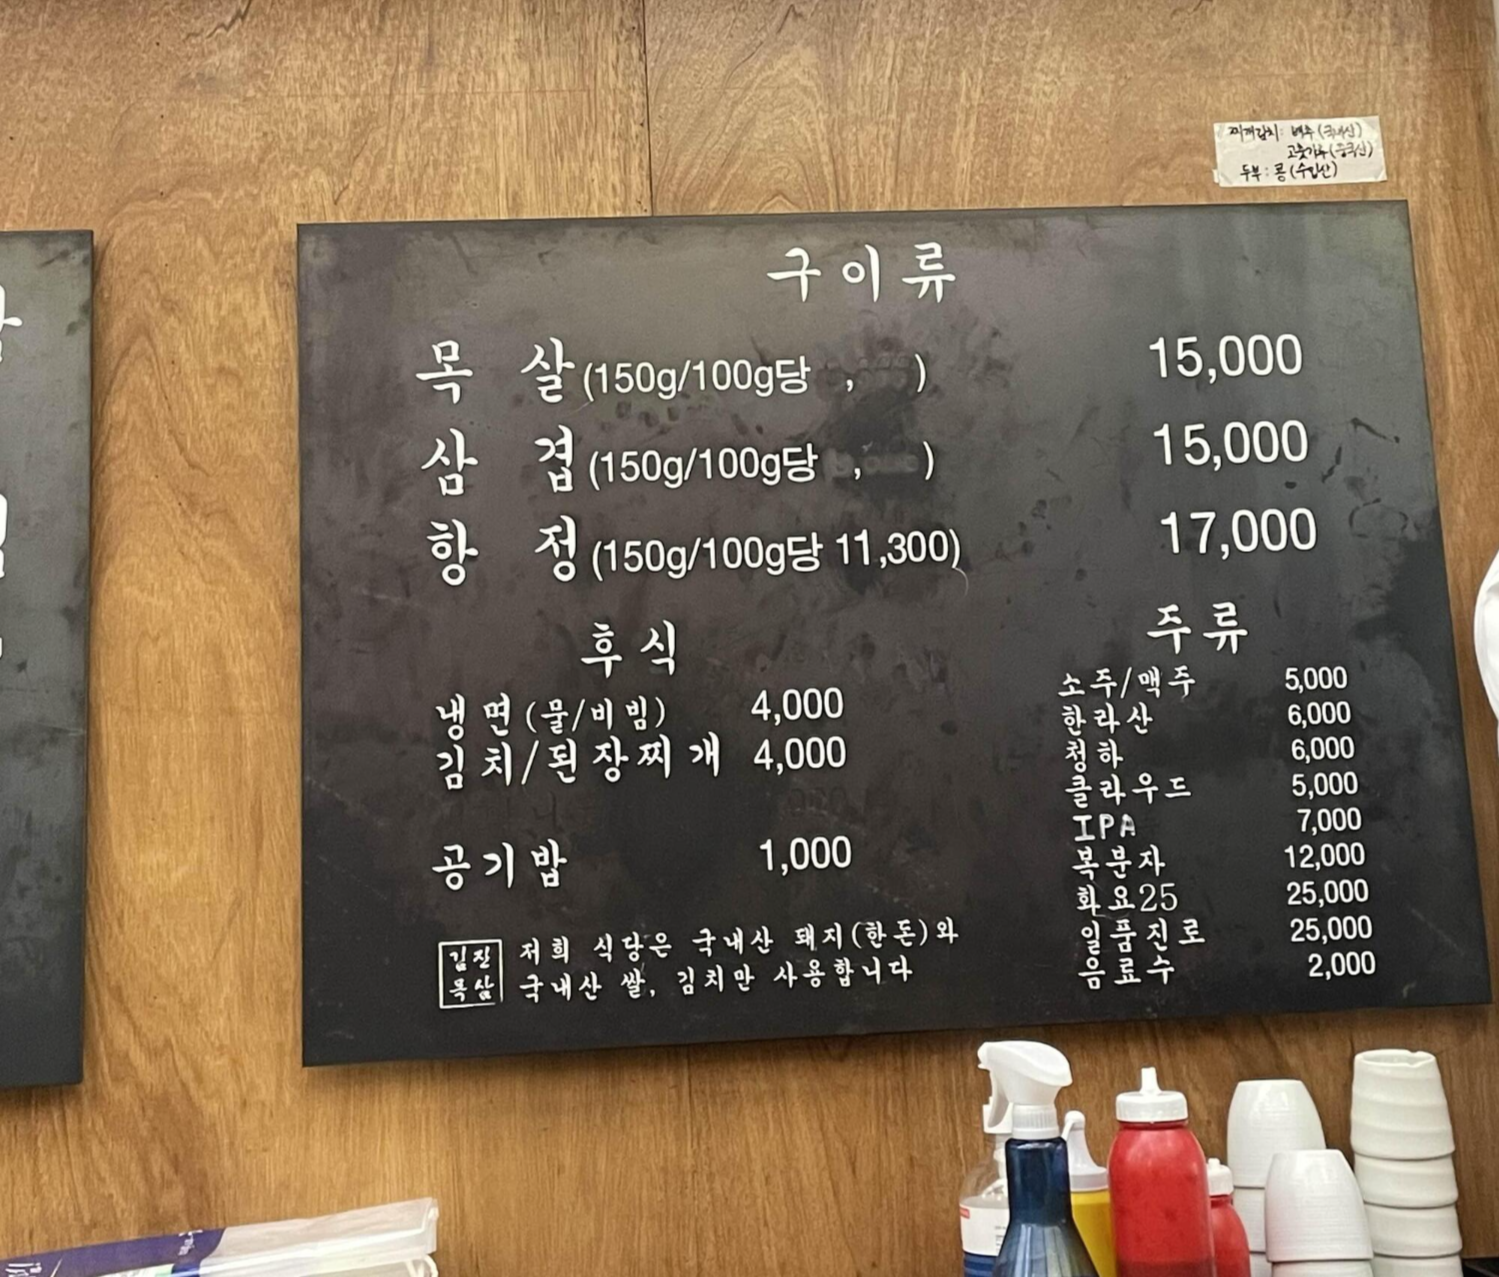 찌개김치: 배추(국내산)
고춧가루(중국산)
두부: 콩(수입산)
구이류
목 살(150g/100g당 , ) 15,000
삼 겹(150g/100g당 , ) 15,000
항 정(150g/100g당 11,300) 17,000
후식
냉면(물/비빔) 4,000
김치/된장찌개 4,000
공기밥 1,000
김진
목삼
저희 식당은 국내산 돼지(한돈)와
국내산 쌀, 김치만 사용합니다
주류
소주/맥주 5,000
한라산 6,000
청하 6,000
클라우드 5,000
IPA 7,000
복분자 12,000
화요25 25,000
일품진로 25,000
음료수 2,000